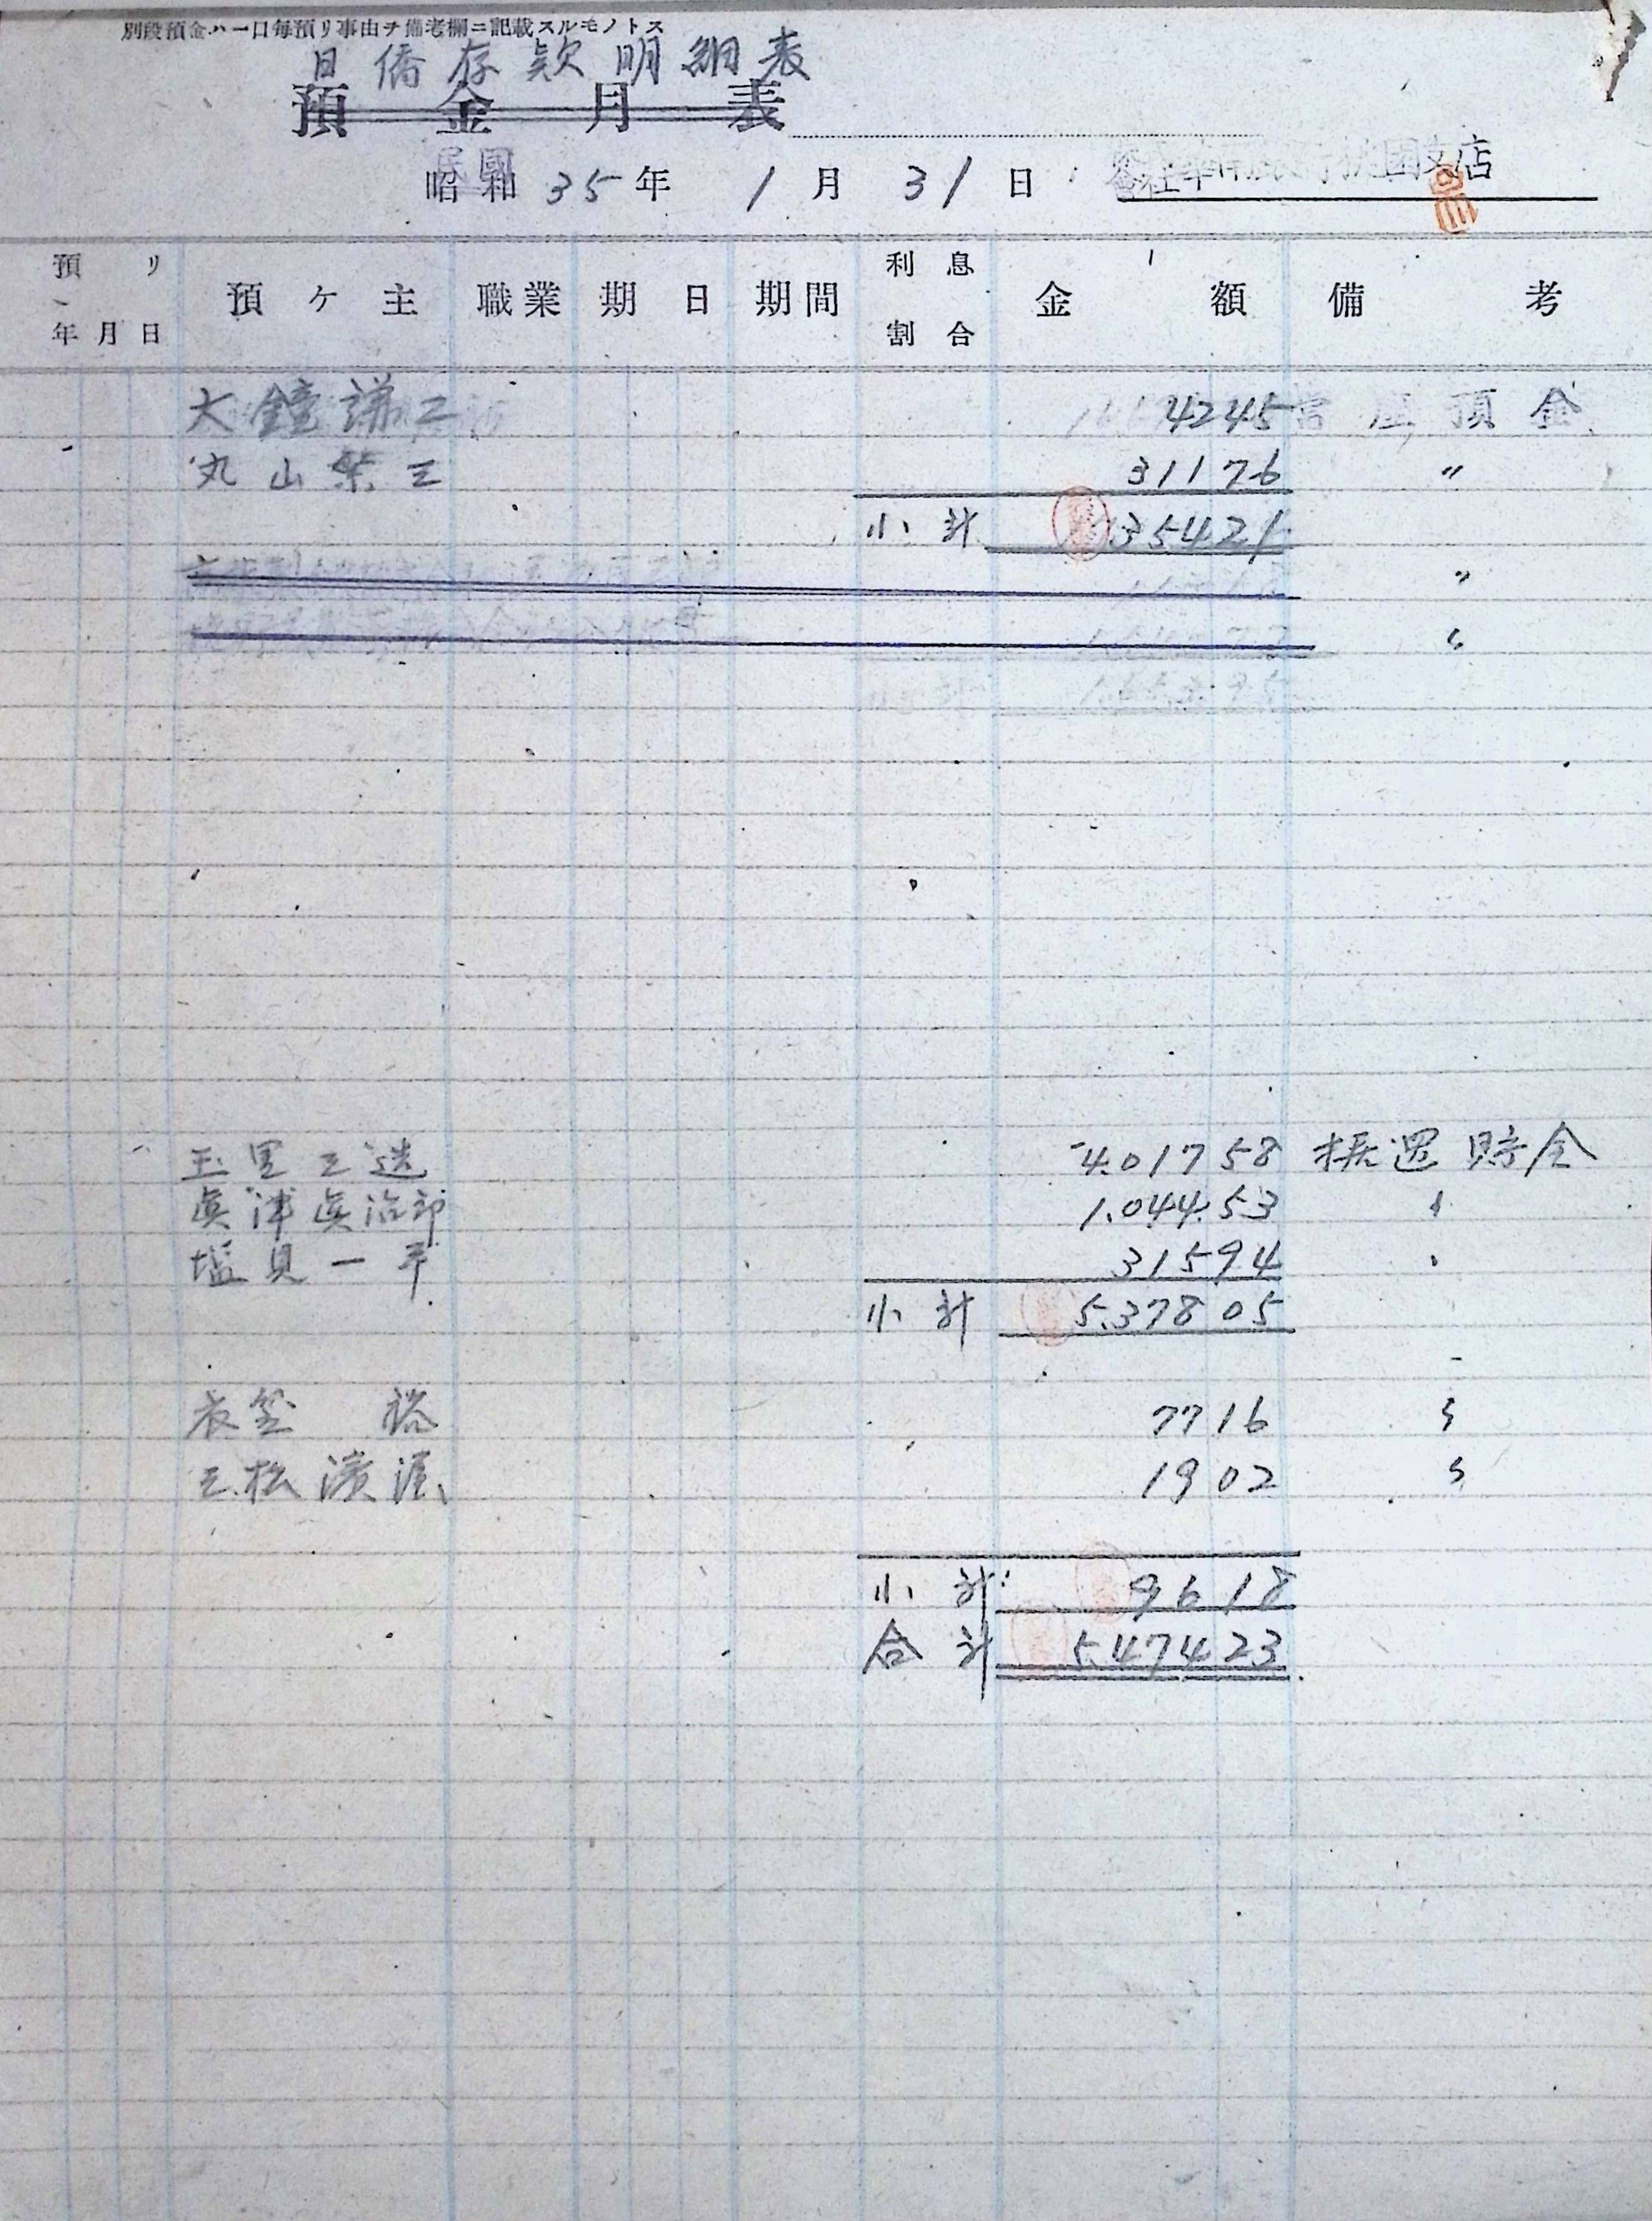 別段預金ハ一口每預リ事由ヲ備考欄ニ記載スルモノトス
日僑存款明細表
預金月表
民國
昭和 35 年 1 月 31 日 株式會社華南銀行桃園支店
預リ年月日 預ケ主 職業 期日 期間 利息割合 金額 備考
大鐘謙二 4245 當座預金
丸山榮三 31176 〃
小計 35421
〃
〃
玉里三逸 4.01758 振還貯金
眞津眞治郎 1.04453 〃
塩見一平 31594 〃
小計 5.37805
衣笠 7716 〃
三松 1902 〃
小計 9618
合計 5.47423